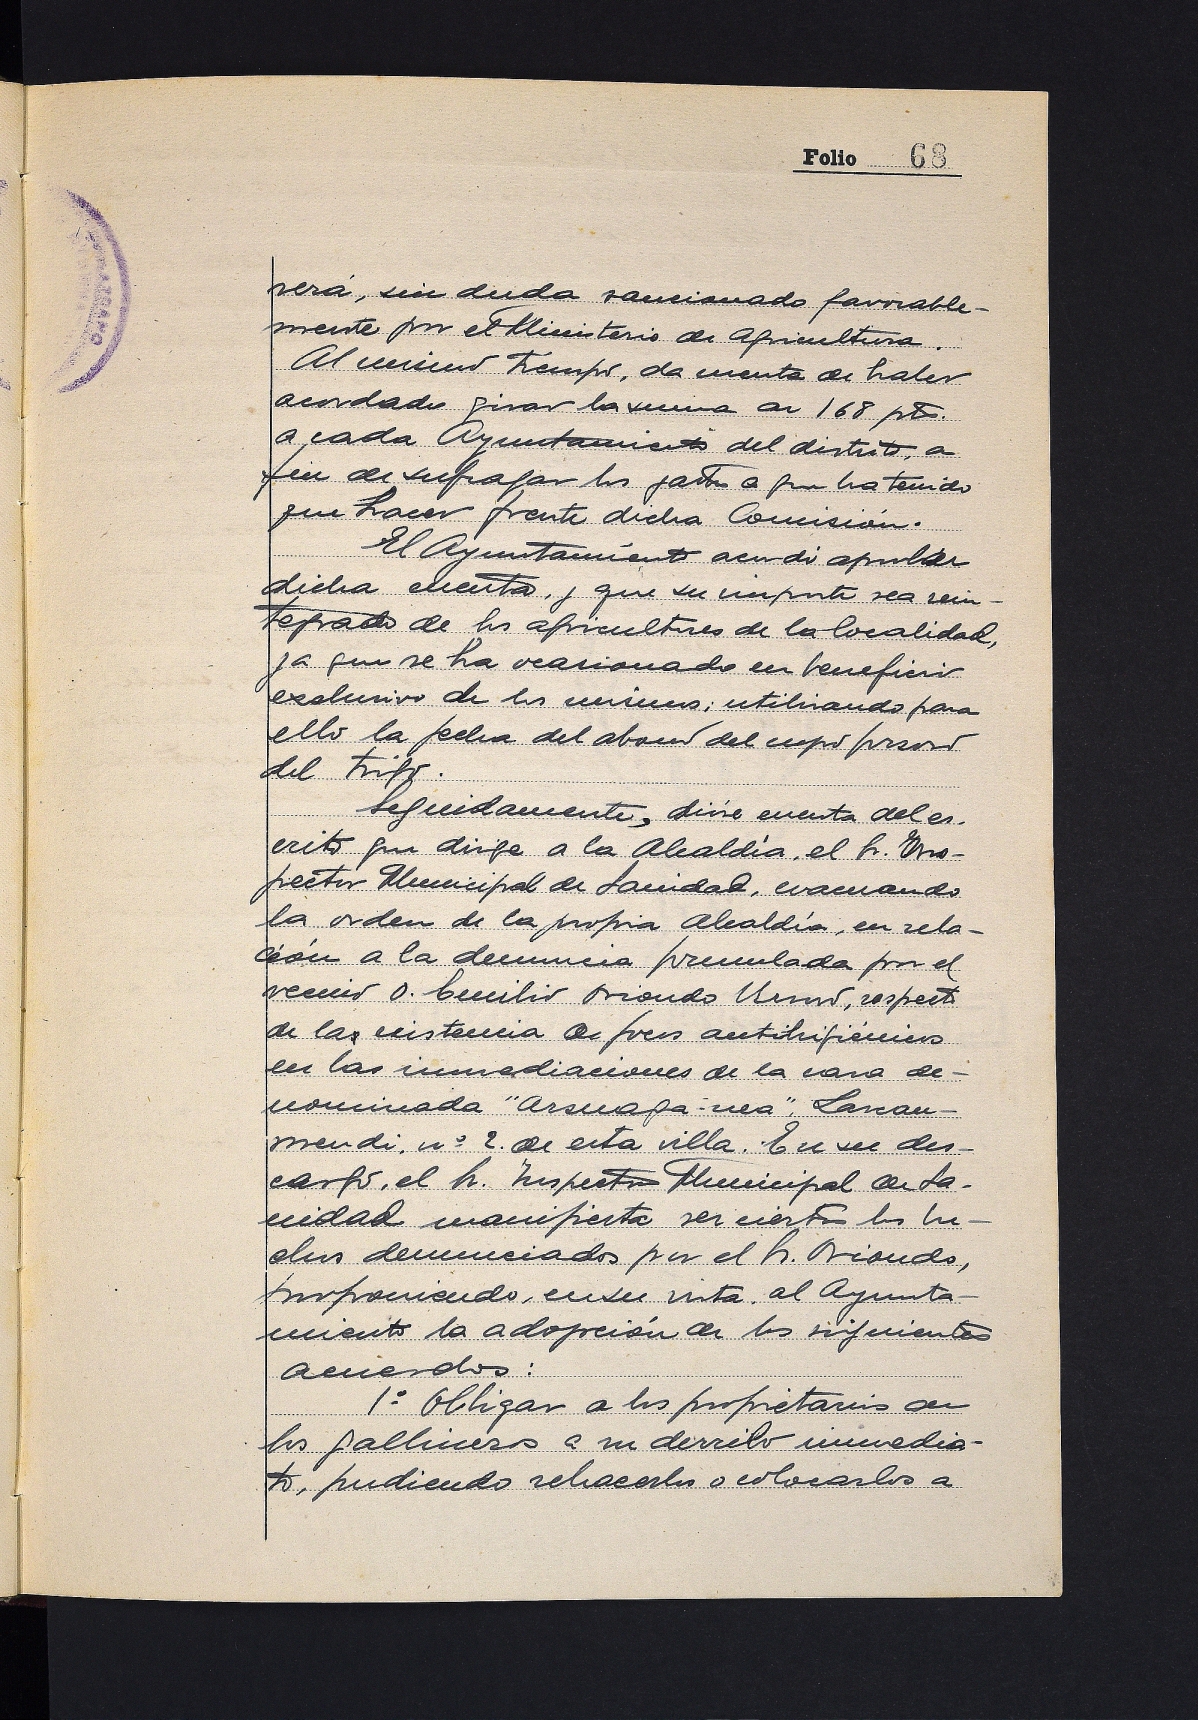 Folio 68
será, sin duda sancionado favorable-
mente por el Ministerio de Agricultura.
Al mismo tiempo, da cuenta de haber
acordado girar la suma de 168 pts.
a cada Ayuntamiento del distrito, a
fin de sufragar los gastos a que ha tenido
que hacer frente dicha Comisión.
El Ayuntamiento acordó aprobar
dicha cuenta, y que su importe sea rein-
tegrado de los agricultores de la localidad,
ya que se ha ocasionado en beneficio
exclusivo de los mismos; utilizando para
ello la fecha del abono del cupo forzoso
del trigo.
Seguidamente, dióse cuenta del es-
crito que dirige a la Alcaldía, el Sr. Ins-
pector Municipal de Sanidad, evacuando
la orden de la propia Alcaldía, en rela-
ción a la denuncia formulada por el
vecino D. Emilio Oriondo, respecto
de la existencia de focos antihigiénicos
en las inmediaciones de la casa de-
nominada "Arsuaga-nea",
mendi, nº 2. de esta villa. En su des-
cargo, el Sr. Inspector Municipal de Sa-
nidad manifiesta ser ciertos los he-
chos denunciados por el Sr. Oriondo,
proponiendo, en su vista, al Ayunta-
miento la adopción de los siguientes
acuerdos:
1º Obligar a los propietarios de
los gallineros a su derribo inmedia-
to, pudiendo rehacerlos o colocarlos a